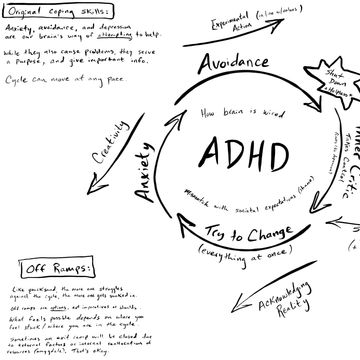 Original coping skills:
Anxiety, avoidance, and depression
are our brain's way of attempting to help.
While they also cause problems, they serve
a purpose, and give important info.
Cycle can move at any pace
Experimental
Action
Avoidance
Shut
Down
Inner Critic
Creativity
Anxiety
How brain is wired
ADHD
with societal expectations
Try to Change
(everything at once)
Acknowledging
Reality
Off Ramps:
Like quicksand, the more one struggles
against the cycle, the more one gets sucked in.
Off ramps are options, not imperatives or shoulds.
What feels possible depends on where you
feel stuck / where you are in the cycle.
Sometimes an exit ramp will be closed due
to external factors or internal reallocation of
resources (amygdala). That's okay.